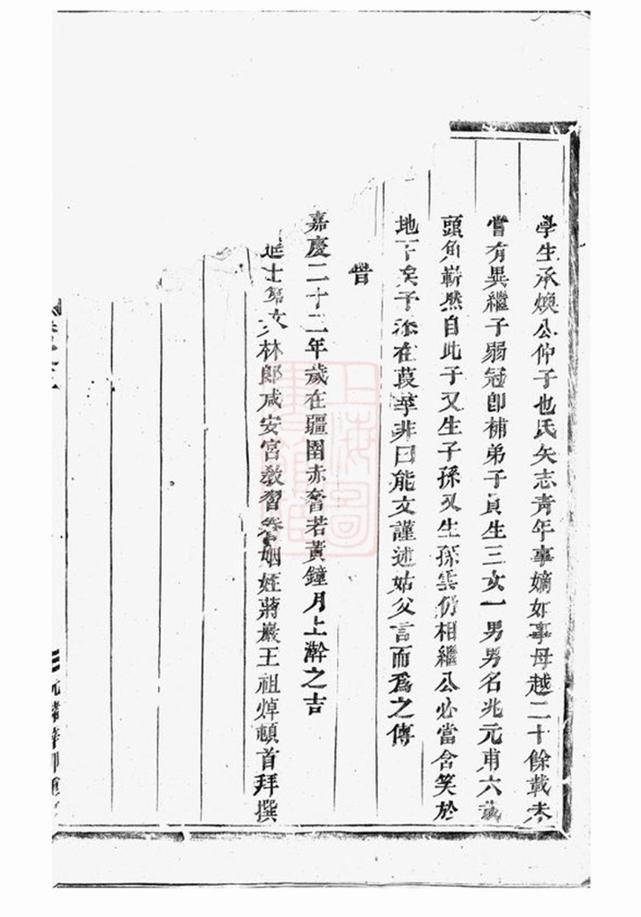 學生承煥公仲子也氏矢志青年事嫡如事母越二十餘載未
嘗有異繼子弱冠卽補弟子員生三女一男男名兆元甫六歲
頭角嶄然自此子又生子孫又生孫雲仍相繼公必當含笑於
地下矣予忝在葭莩非曰能文謹述姑父言而爲之傳
旹
嘉慶二十二年歲在疆圉赤奮若黃鐘月上澣之吉
進士第文林郎咸安宮教習眷姻姪蔣巖王祖焯頓首拜撰
上海圖書館藏